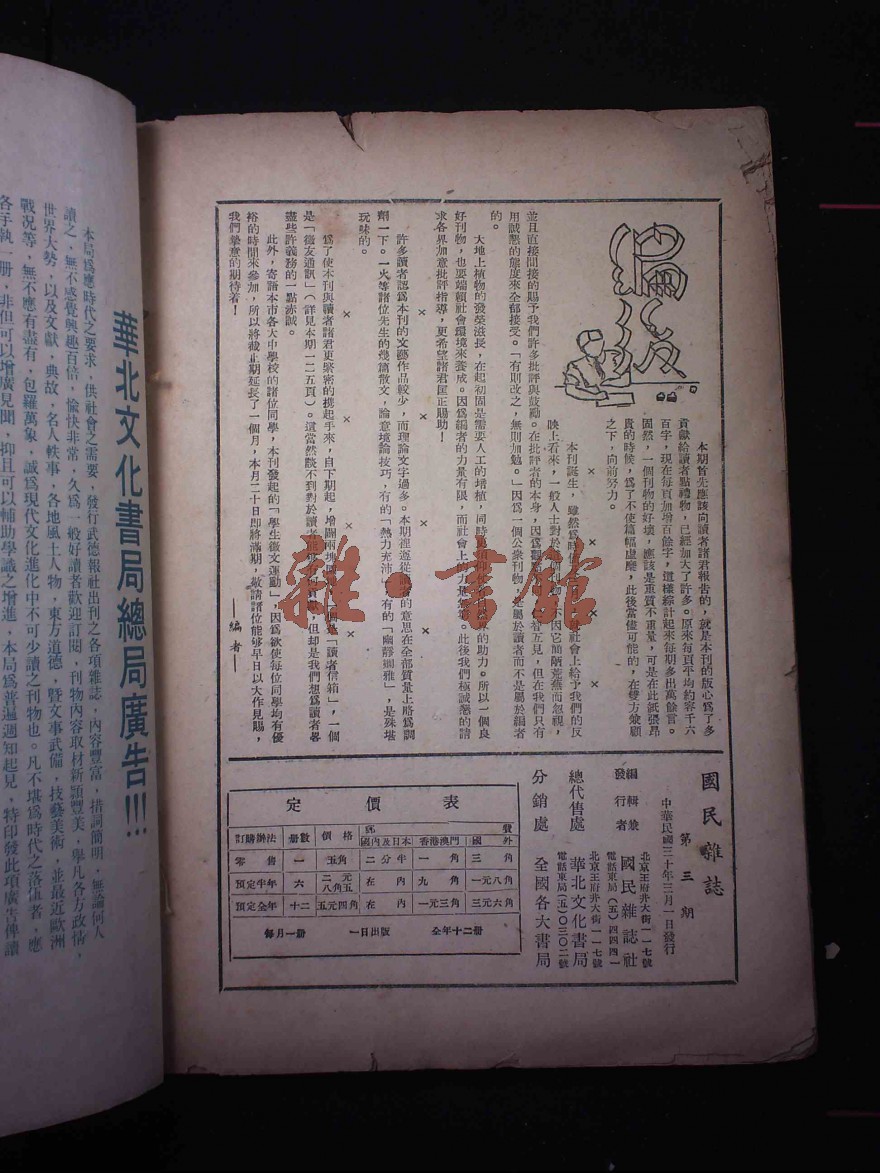 本期首先應該向讀者諸君報告的，就是本刊的版心爲了多
貢獻給讀者點禮物，已經加大了許多。原來每頁平均約容千六
百字，現在每頁加增百餘字，這樣綜計起來每期多出萬餘言。
固然，一個刊物的好壞，應該是重質不重量，可是在此紙張昂
貴的時候，爲了不使篇幅虛靡，此後當儘可能的，在雙方兼顧
之下，向前努力。
× × × ×
本刊誕生，雖然爲時
社會上給予我們的反
映上看來，一般人士對於
因它簡陋荒蕪而忽視，
並且直接間接的賜予我們許多批評與鼓勵。在批評者的本身，因爲觀
互見，但在我們只有
用誠懇的態度來全部接受。「有則改之，無則加勉。」因爲一個公衆刊物，是屬於讀者而不是屬於編者
的。
大地上植物的發榮滋長，在起初固是需要人工的培植，同時
的助力。所以一個良
好刊物，也要端賴社會環境來養成。因爲編者的力量有限，而社會上的力量
此後我們極誠懇的請
求各界加意批評指導，更希望諸君匡正賜助！
× × ×
許多讀者認爲本刊的文藝作品較少，而理論文字過多。本期謹遵從
的意思在全部質量上略爲調
劑一下。一火等諸位先生的幾篇散文，論意境論技巧，有的「熱力充沛」，有的「幽靜嫻雅」，是殊堪
玩味的。
× × × ×
爲了使本刊與讀者諸君更緊密的携起手來，自下期起，增闢兩
「讀者信箱」，一個
是「徵友通訊」（詳見本期一二五頁）。這當然談不到對於讀者
但却是我們想爲讀者畧
盡些許義務的一點赤誠。
此外，寄語本市各大中學校的諸位同學，本刊發起的「學生徵文運動」，因爲欲使每位同學均有優
裕的時間來參加，所以將截止期延長了一個月，本月二十日即將滿期，敬請諸位能够早日以大作見賜，
我們摯意的期待着！
——編者——
國民雜誌
第三期
中華民國三十年三月一日發行
編輯兼
發行者
國民雜誌社
北京王府井大街一一七號
電話東局（五）四四四一
總代售處
華北文化書局
北京王府井大街一一七號
電話東局（五）〇三〇二號
分銷處
全國各大書局
定價表
訂購辦法 册數 價格 郵費
國內及日本 香港澳門 國外
零售 一 五角 二分半 一角 三角
預定半年 六 二元八角五 在內 九角 一元八角
預定全年 十二 五元四角 在內 一元三角 三元六角
每月一册 一日出版 全年十二册
華北文化書局總局廣告!!!
本局爲應時代之要求，供社會之需要，發行武德報社出刊之各項雜誌，內容豐富，措詞簡明，無論何人
讀之，無不感覺興趣百倍，愉快非常，久爲一般好讀者歡迎訂閱，刊物內容取材新頴豐美，舉凡各方政情，
世界大勢，以及文獻，典故，名人軼事，各地風土人物，東方道德，暨文事武備，技藝美術，並最近歐洲
戰況等，無不應有盡有，包羅萬象，誠爲現代文化進化中不可少讀之刊物也。凡不堪爲時代之落伍者，應
各手執一册，非但可以增廣見聞，抑且可以輔助學識之增進，本局爲普遍週知起見，特印發此項廣告俾讀
雜·書館